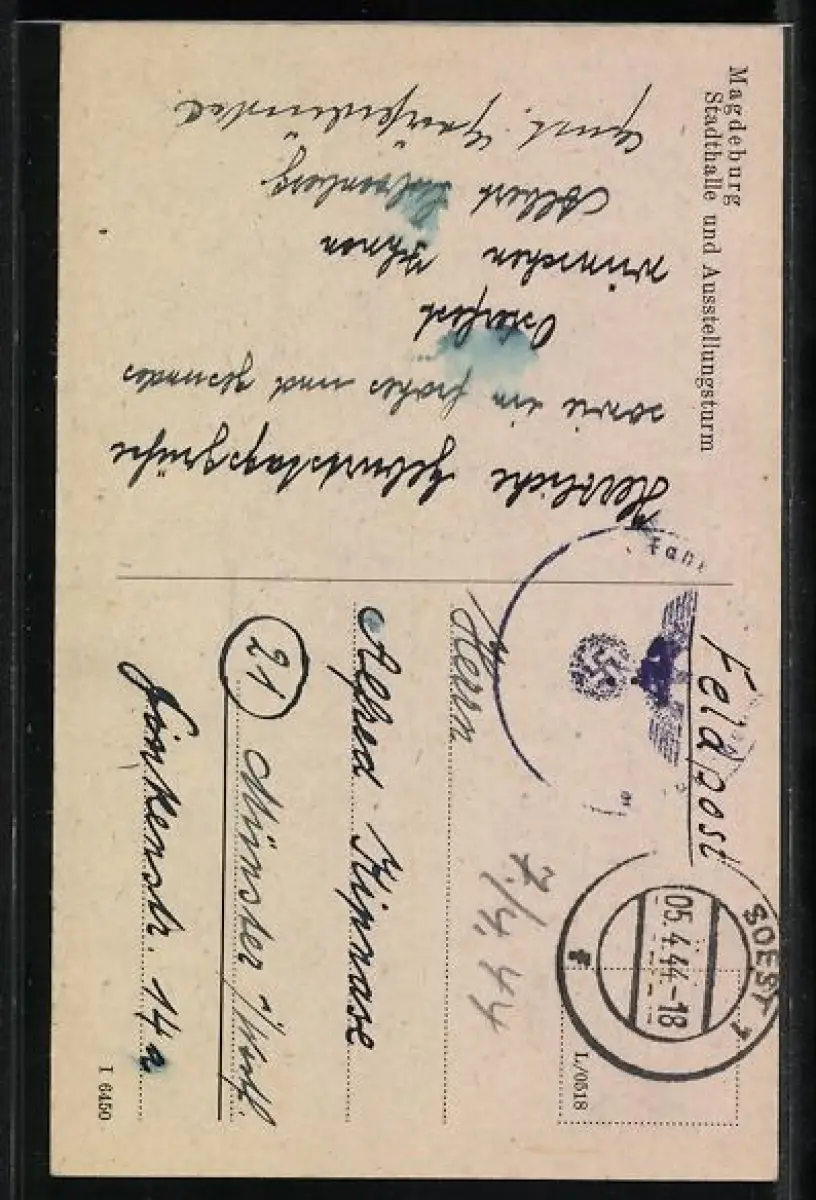 Magdeburg
Stadthalle und Ausstellungsturm
Herzliche Geburtstagsgrüße
sowie ein frohes und gesundes
Osterfest
wünschen Ihnen
Albert
Feldpost
SOEST 1
05.4.44-18
f
7/4.44
Herrn
Alfred Kipnase
(21) Münster i/Westf.
14a
L/0518
I 6450